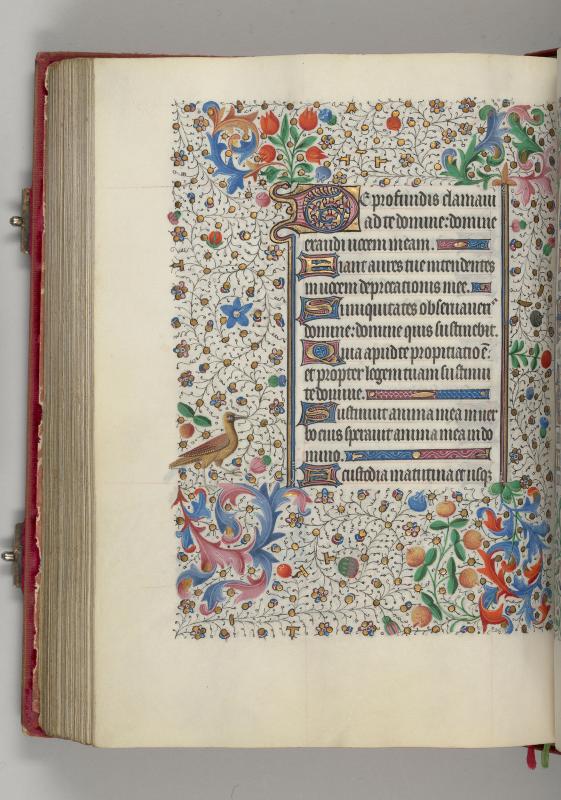 De profundis clamaui
ad te domine: domine
exaudi uocem meam.
Fiant aures tue intendentes
in uocem deprecationis mee.
Si iniquitates obseruauer̄
domine: domine quis sustinebit.
Quia apud te propitiatio ē.
et propter legem tuam sustinui
te domine.
Sustinuit anima mea in uer
bo eius sperauit anima mea in do
mino.
A custodia matutina et usq̄